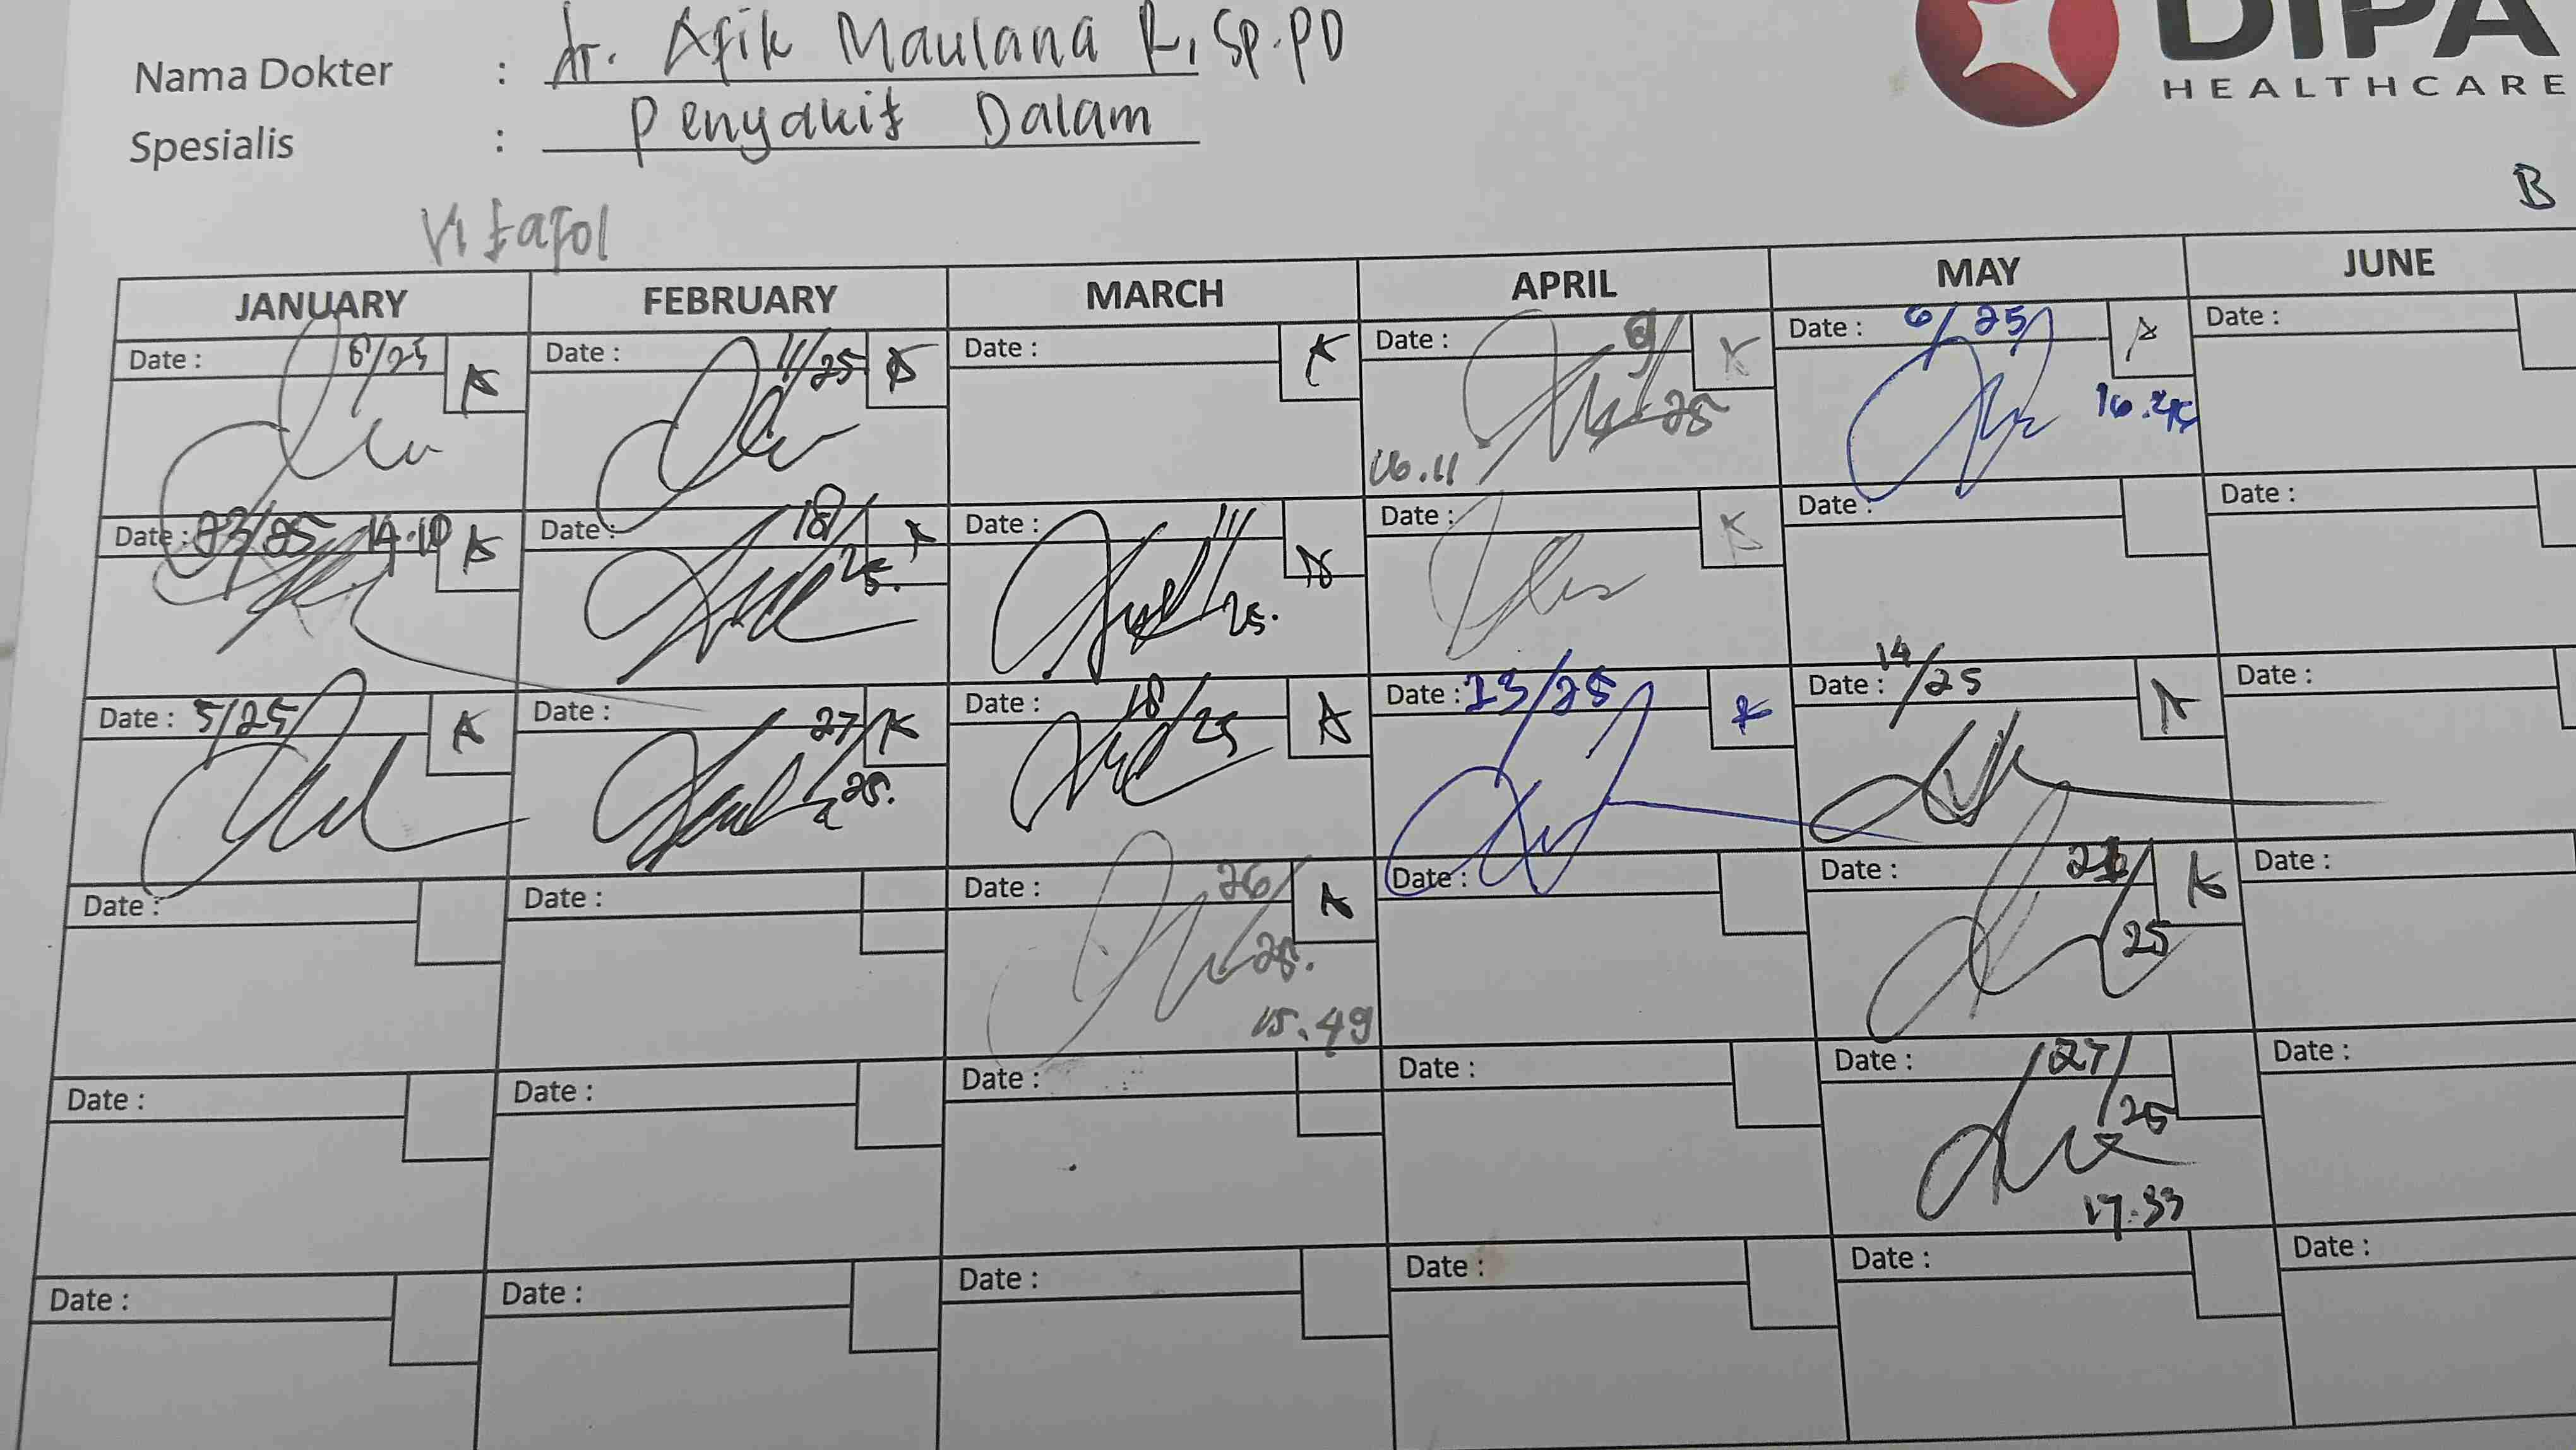 DIPA
HEALTHCARE
Nama Dokter : dr. Afik Maulana R, Sp.PD
Spesialis : Penyakit Dalam
B
Vitafol
JANUARY FEBRUARY MARCH APRIL MAY JUNE
Date : 8/25 Date : 11/25 Date : Date : 8/25 Date : 6/25 Date :
16.11 16.45
Date : 23/25 14.10 Date : 18/25. Date : 11/25. Date : Date : Date :
Date : 5/25 Date : 27/25. Date : 18/25 Date : 23/25 Date : 14/25 Date :
Date : Date : Date : 26/25. Date : Date : /25 Date :
15.49
Date : Date : Date : Date : Date : 27/25 Date :
17.33
Date : Date : Date : Date : Date : Date :